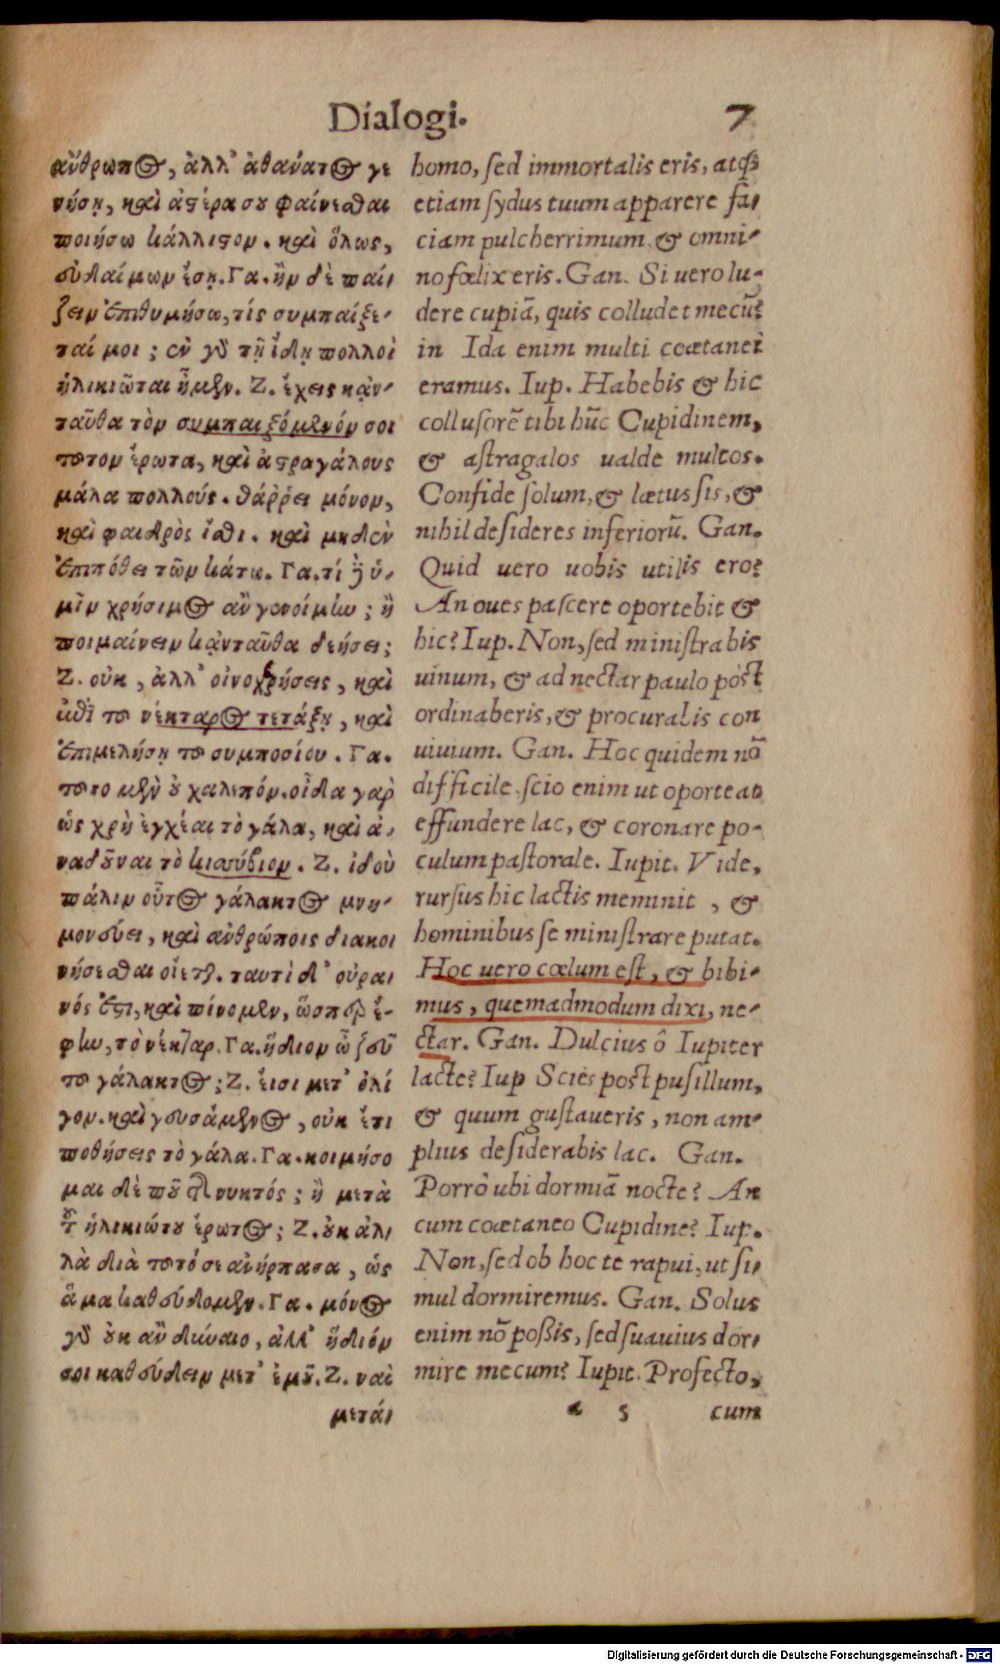 Dialogi. 7
ἄνθρωπος, ἀλλ' ἀθάνατος γε
νήσῃ, καὶ ἀστέρα σου φαίνεσθαι
ποιήσω κάλλιστον. καὶ ὅλως,
εὐδαίμων ἔσῃ. Γα. ἢν δὲ παί-
ζειν ἐπιθυμήσω, τίς συμπαίξε-
ταί μοι; ἐν γὸ τῇ ἴδῃ πολλοὶ
ἡλικιῶται ἦμεν. Ζ. ἔχεις κᾀν-
ταῦθα τὸν συμπαιξόμενόν σοι
τουτον ἔρωτα, καὶ ἀστραγάλους
μάλα πολλούς. θάῤῥει μόνον,
καὶ φαιδρὸς ἴσθι. καὶ μηδὲν
ἐπιπόθει τῶν κάτω. Γα. τί δὲ ὑ-
μῖν χρήσιμος ἂν γενοίμην; ἢ
ποιμαίνειν κᾀνταῦθα δεήσει;
Ζ. οὐκ, ἀλλ' οἰνοχοήσεις, καὶ
ἐπὶ του νέκταρος τετάξῃ, καὶ
ἐπιμελήσῃ του συμποσίου. Γα.
τουτο μὲν οὐ χαλεπόν. οἶδα γαρ
ὡς χρὴ ἐγχέαι τὸ γάλα, καὶ ἀ-
ναδοῦναι τὸ κισσύβιον. Ζ. ἰδοὺ
πάλιν οὗτος γάλακτος μνη-
μονεύει, καὶ ἀνθρώποις διακοι
νήσεσθαι οἴεται. ταυτὶ δ' οὐρα-
νός ἐστι, καὶ πίνομεν, ὥσπερ ἔ-
φην, τὸ νέκταρ. Γα. ἥδιον ὦ ζεῦ
του γάλακτος; Ζ. εἴσι μετ' ὀλί
γον. καὶ γευσάμενος, οὐκ ἔτι
ποθήσεις τὸ γάλα. Γα. κοιμήσο
μαι δὲ ποῦ τῆς νυκτός; ἢ μετὰ
τοῦ ἡλικιώτου ἔρωτος; Ζ. οὐκ ἀλ-
λὰ διὰ τουτό σε ἀνήρπασα, ὡς
ἅμα καθεύδοιμεν. Γα. μόνος
γὸ οὐκ ἂν δύναιο, ἀλλ' ἥδιόν
σοι καθεύδειν μετ' ἐμοῦ. Ζ. ναὶ
μετά-
homo, sed immortalis eris, atq;
etiam sydus tuum apparere fa-
ciam pulcherrimum & omni-
no fœlix eris. Gan. Si uero lu-
dere cupiā, quis colludet mecū?
in Ida enim multi coætanei
eramus. Iup. Habebis & hic
collusorē tibi hūc Cupidinem,
& astragalos ualde multos.
Confide solum, & lætus sis, &
nihil desideres inferiorū. Gan.
Quid uero uobis utilis ero?
An oues pascere oportebit &
hic? Iup. Non, sed ministrabis
uinum, & ad nectar paulo pòst
ordinaberis, & procuralis con
uiuium. Gan. Hoc quidem nō
difficile. scio enim ut oporteat
effundere lac, & coronare po-
culum pastorale. Iupit. Vide,
rursus hic lactis meminit, &
hominibus se ministrare putat.
Hoc uero cœlum est, & bibi-
mus, quemadmodum dixi, ne-
ctar. Gan. Dulcius ô Iupiter
lacte? Iup Scies post pusillum,
& quum gustaueris, non am-
plius desiderabis lac. Gan.
Porrò ubi dormiā nocte? An
cum coætaneo Cupidine? Iup.
Non, sed ob hoc te rapui, ut si-
mul dormiremus. Gan. Solus
enim nō poßis, sed suauius dor-
mire mecum? Iupit. Profecto,
a 5 cum
Digitalisierung gefördert durch die Deutsche Forschungsgemeinschaft - DFG